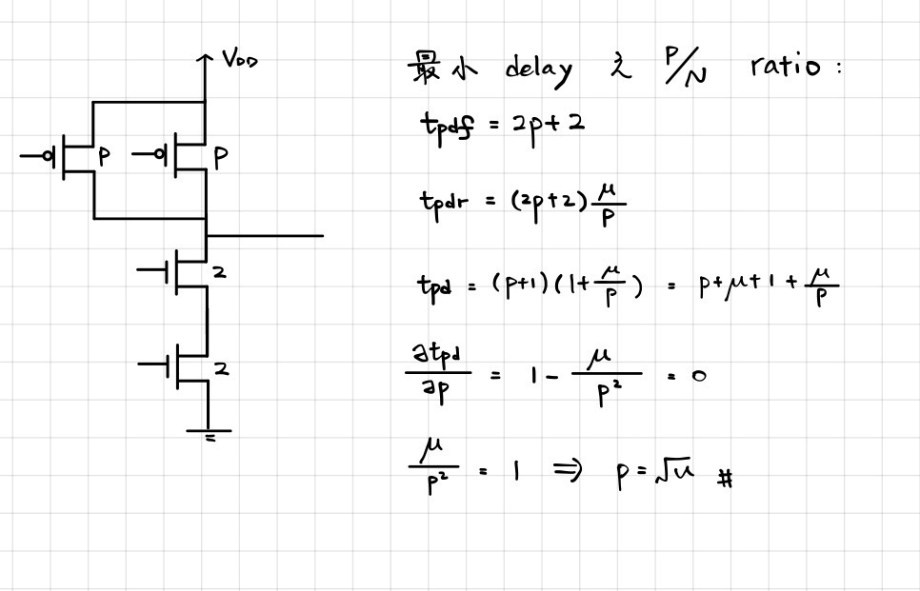 V_DD
P
P
2
2
最小 delay 之 P/N ratio:
t_pdf = 2p+2
t_pdr = (2p+2) μ/P
t_pd = (p+1)(1+μ/p) = p+μ+1+μ/p
∂t_pd/∂p = 1 - μ/p² = 0
μ/p² = 1 ⇒ p = √u #